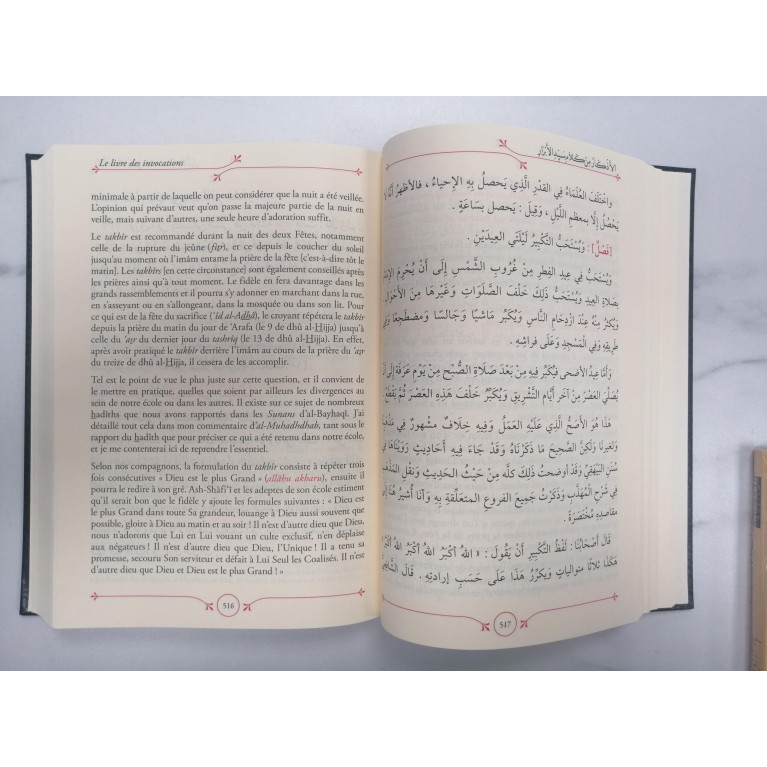 Le livre des invocations
minimale à partir de laquelle on peut considérer que la nuit a été veillée.
L'opinion qui prévaut veut qu'on passe la majeure partie de la nuit
en veille, mais suivant d'autres, une seule heure d'adoration suffit.
Le takbîr est recommandé durant la nuit des deux Fêtes, notamment
celle de la rupture du jeûne (fitr), et ce depuis le coucher du soleil
jusqu'au moment où l'imâm entame la prière de la fête [c'est-à-dire tôt le
matin]. Les takbîrs [en cette circonstance] sont également conseillés après
les prières ainsi qu'à tout moment. Le fidèle en fera davantage dans les
grands rassemblements et il pourra s'y adonner en marchant dans la rue,
en s'asseyant ou en s'allongeant, dans la mosquée ou dans son lit. Pour
ce qui est de la fête du sacrifice ('îd al-Adhâ), le croyant tépétera le takbîr
depuis la prière du matin du jour de 'Arafa (le 9 de dhû al-Hijja) jusqu'à
celle du 'asr du dernier jour du tashrîq (le 13 de dhû al-Hijja). En effet,
après avoir pratiqué le takbîr derrière l'imâm au cours de la prière du 'asr
du treize de dhû al-Hijja, il cessera de les accomplir.
Tel est le point de vue le plus juste sur cette question, et il convient de
le mettre en pratique, quelles que soient par ailleurs les divergences au
sein de notre école ou dans les autres. Il existe sur ce sujet de nombreux
hadîths que nous avons rapportés dans les Sunans d'al-Bayhaqî. J'ai
détaillé tout cela dans mon commentaire d'al-Muhadhdhab, tant sous le
rapport du hadîth que pour préciser ce qui a été retenu dans notre école,
et je me contenterai ici de reprendre l'essentiel.
Selon nos compagnons, la formulation du takbîr consiste à tépéter trois
fois consécutives « Dieu est le plus Grand » (allâhu akbaru), ensuite il
pourra le redire à son gré. Ash-Shâfi'î et les adeptes de son école estiment
qu'il serait bon que le fidèle y ajoute les formules suivantes : « Dieu est
le plus Grand dans toute Sa grandeur, louange à Dieu aussi souvent que
possible, gloire à Dieu au matin et au soir ! Il n'est d'autre dieu que Dieu,
nous n'adorons que Lui en Lui vouant un culte exclusif, n'en déplaise
aux négateurs ! Il n'est d'autre dieu que Dieu, l'Unique ! Il a tenu sa
promesse, secouru Son serviteur et défait à Lui Seul les Coalisés. Il n'est
d'autre dieu que Dieu et Dieu est le plus Grand ! »
516
الأذكار من كلام سيد الأبرار
واختَلَفَ العُلَمَاءُ فِي القَدْرِ الَّذِي يَحصلُ بِهِ الإِحياءُ ، فالأظهرُ أنَّهُ لَا
يَحْصُلُ إِلَّا بمعظم اللَّيْلِ ، وَقِيلَ : يَحصل بسَاعَةٍ .
[فَصْلٌ] : وَيُسْتَحَبُّ التَّكْبِيرُ لَيْلَتَي العِيدَيْنِ .
وَيُسْتَحَبُّ فِي عِيدِ الفِطْرِ مِنْ غُرُوبِ الشَّمْسِ إِلَى أَنْ يُحْرِمَ الإِمَامُ
بصَلَاةِ العِيدِ وَيُسْتَحَبُّ ذَلِكَ خَلْفَ الصَّلَوَاتِ وَغَيْرِهَا مِنَ الأَحْوَالِ
وَيُكثرُ مِنْهُ عِنْدَ ازدِحَامِ النَّاسِ وَيُكَبِّرُ مَاشيًا وَجَالسًا وَمضطجعًا وَفِي
طريقِهِ وَفِي الْمَسْجِدِ وَعَلَى فراشِهِ .
وَأَمَّا عِيدُ الأضحى فَيُكَبِّرُ فِيهِ مِنْ بَعْدَ صَلَاةِ الصُّبْحِ مِنْ يَوْمِ عَرَفَةَ إِلَى أَنْ
يُصَلِّيَ العَصْرَ مِنْ آخِرِ أَيَّامِ التَّشْرِيقِ وَيُكَبِّرُ خَلْفَ هَذِهِ العَصْرِ ثُمَّ يَقْطَعُ
هَذَا هُوَ الأَصَحُّ الَّذِي عَلَيْهِ العَمَلُ وَفِيهِ خِلَافٌ مَشْهُورٌ فِي مَذْهَبِنَا
ولغيرنَا وَلَكِنَّ الصَّحِيحَ مَا ذَكَرْنَاهُ وَقَدْ جَاءَ فِيهِ أَحَادِيثُ رَوَيْنَاهَا فِي
سُنَنِ البَيْهَقِيِّ وَقَدْ أوضحتُ ذَلِكَ كلَّه مِنْ حَيْثُ الحَدِيثِ وَنَقْلِ المَذْهَبِ
فِي شَرْحِ الْمُهَذَّبِ وَذَكَرْتُ جَمِيعَ الفروعِ المتعلّقَةِ بِهِ وَأَنَا أُشيرُ هُنَا إِلَى
مقاصدِهِ مُخْتَصَرَةً .
قَالَ أَصحَابُنَا : لَفْظُ التَّكْبِيرِ أَنْ يَقُولَ : « اللهُ أَكْبَرُ اللهُ أَكْبَرُ اللهُ أَكْبَرُ
هَكَذَا ثلاثًا متوالياتٍ ويكرّرُ هَذَا عَلَى حَسَبِ إرادتِهِ . قَالَ الشَّافِعِيُّ
517